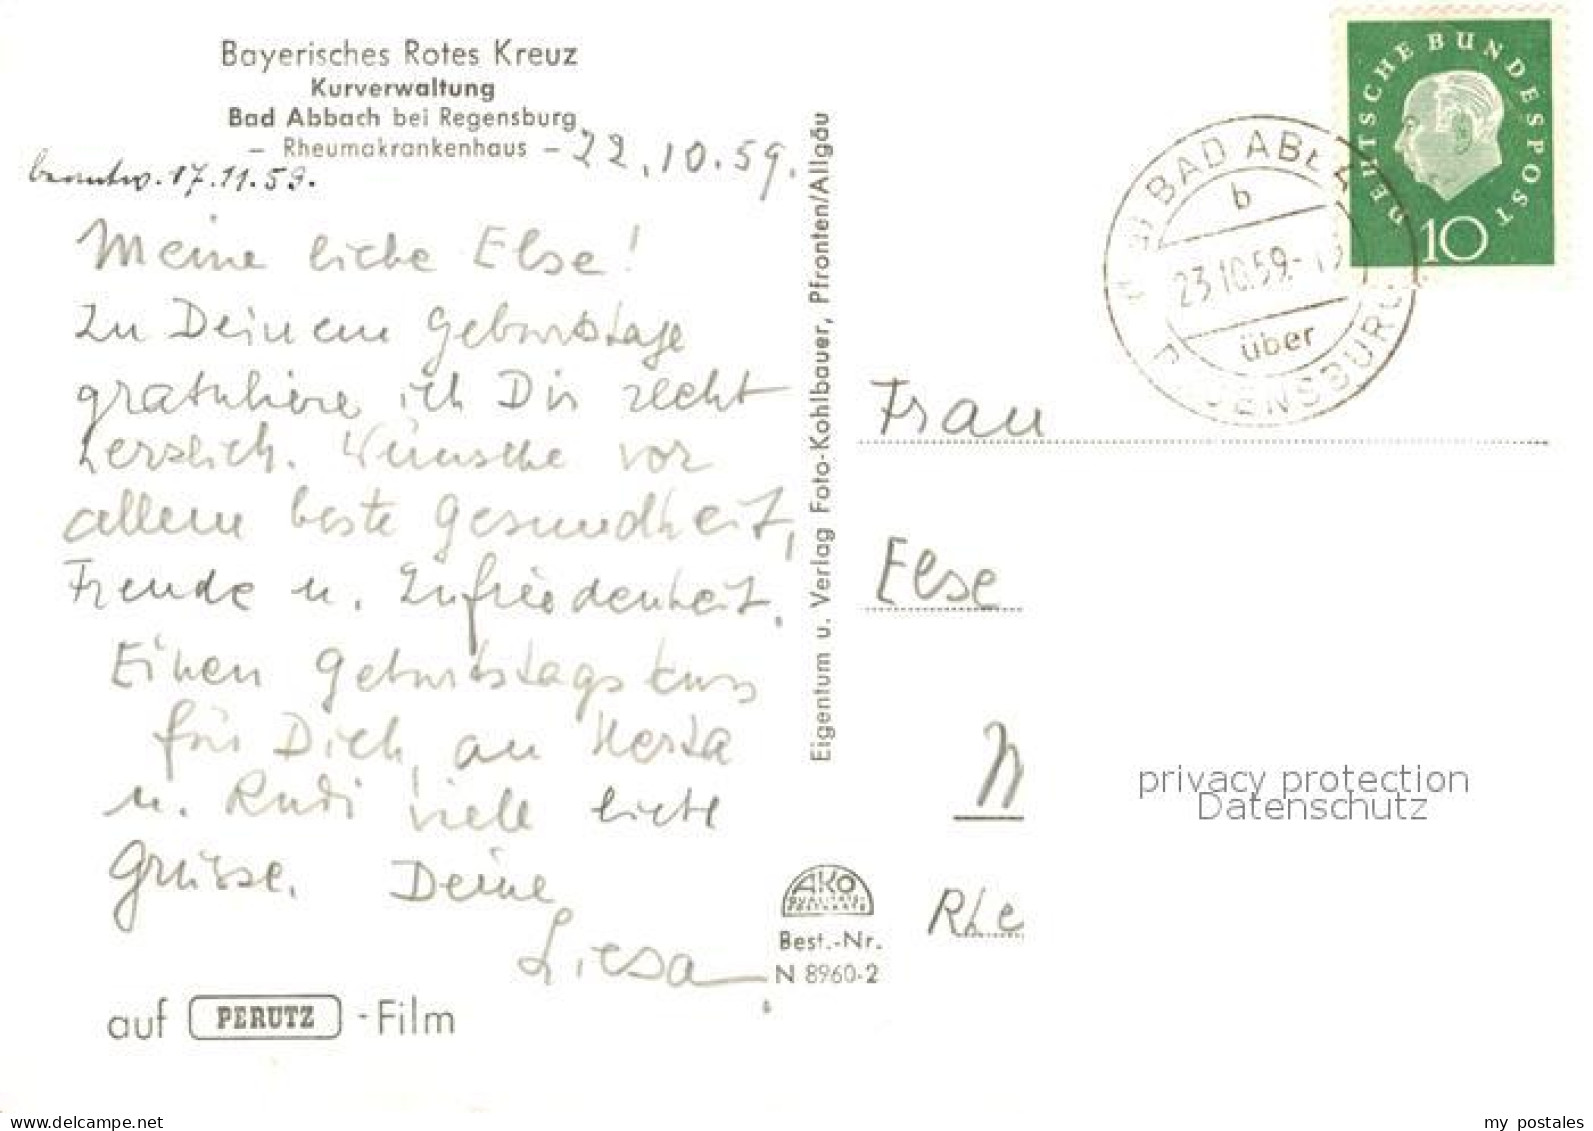 Bayerisches Rotes Kreuz
Kurverwaltung
Bad Abbach bei Regensburg
- Rheumakrankenhaus -
22.10.59.
beantw. 17.11.59.
Meine liebe Else!
Zu Deinem Geburtstage
gratuliere ich Dir recht
herzlich. Wünsche vor
allem beste Gesundheit,
Freude u. Zufriedenheit.
Einen Geburtstagskuss
für Dich, an Herta
u. Rudi viele liebe
Grüsse. Deine
Liesa
auf PERUTZ -Film
Eigentum u. Verlag Foto-Kohlbauer, Pfronten/Allgäu
AKO
QUALITÄTS-
POSTKARTE
Best.-Nr.
N 8960-2
BAD ABBA
b
23.10.59.-
über
REGENSBURG
DEUTSCHE BUNDESPOST
10
Frau
Else
Rhe
privacy protection
Datenschutz
www.delcampe.net
my_postales